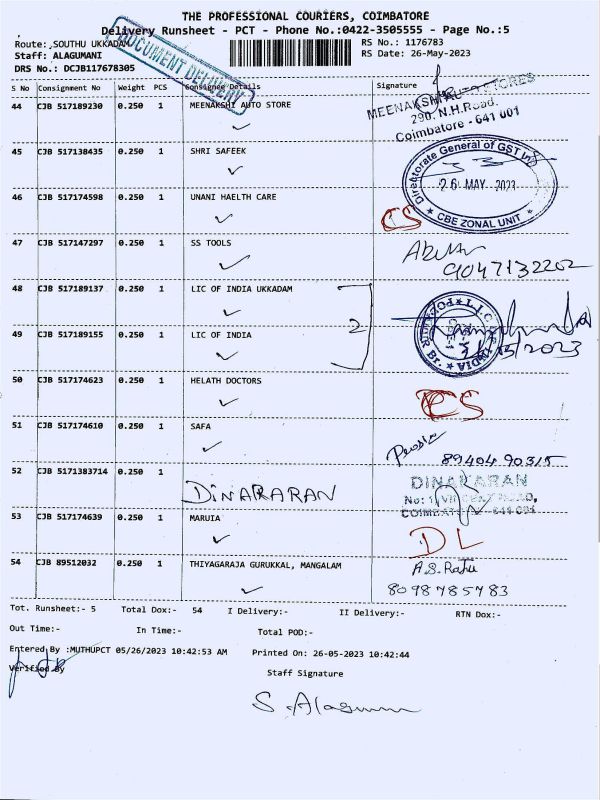 THE PROFESSIONAL COURIERS, COIMBATORE
Delivery Runsheet - PCT - Phone No.:0422-3505555 - Page No.:5
Route: SOUTHU UKKADAM RS No.: 1176783
Staff: ALAGUMANI RS Date: 26-May-2023
DRS No.: DCJB117678305
DOCUMENT DELIVERY
S No Consignment No Weight PCS Consignee Details Signature
44 CJB 517189230 0.250 1 MEENAKSHI AUTO STORE
MEENAKSHI AUTO STORES
290, N.H.Road,
Coimbatore - 641 001
45 CJB 517138435 0.250 1 SHRI SAFEEK
Directorate General of GST
26 MAY 2023
★ CBE ZONAL UNIT ★
46 CJB 517174598 0.250 1 UNANI HAELTH CARE
CS
47 CJB 517147297 0.250 1 SS TOOLS
9047132202
48 CJB 517189137 0.250 1 LIC OF INDIA UKKADAM
2
49 CJB 517189155 0.250 1 LIC OF INDIA
2023
50 CJB 517174623 0.250 1 HELATH DOCTORS
CS
51 CJB 517174610 0.250 1 SAFA
89404 90315
52 CJB 5171383714 0.250 1 DINAKARAN
DINAKARAN
53 CJB 517174639 0.250 1 MARUIA
DL
54 CJB 89512032 0.250 1 THIYAGARAJA GURUKKAL, MANGALAM
8098785783
Tot. Runsheet:- 5 Total Dox:- 54 I Delivery:- II Delivery:- RTN Dox:-
Out Time:- In Time:- Total POD:-
Entered By :MUTHUPCT 05/26/2023 10:42:53 AM Printed On: 26-05-2023 10:42:44
Verified By Staff Signature
S. Alagumani